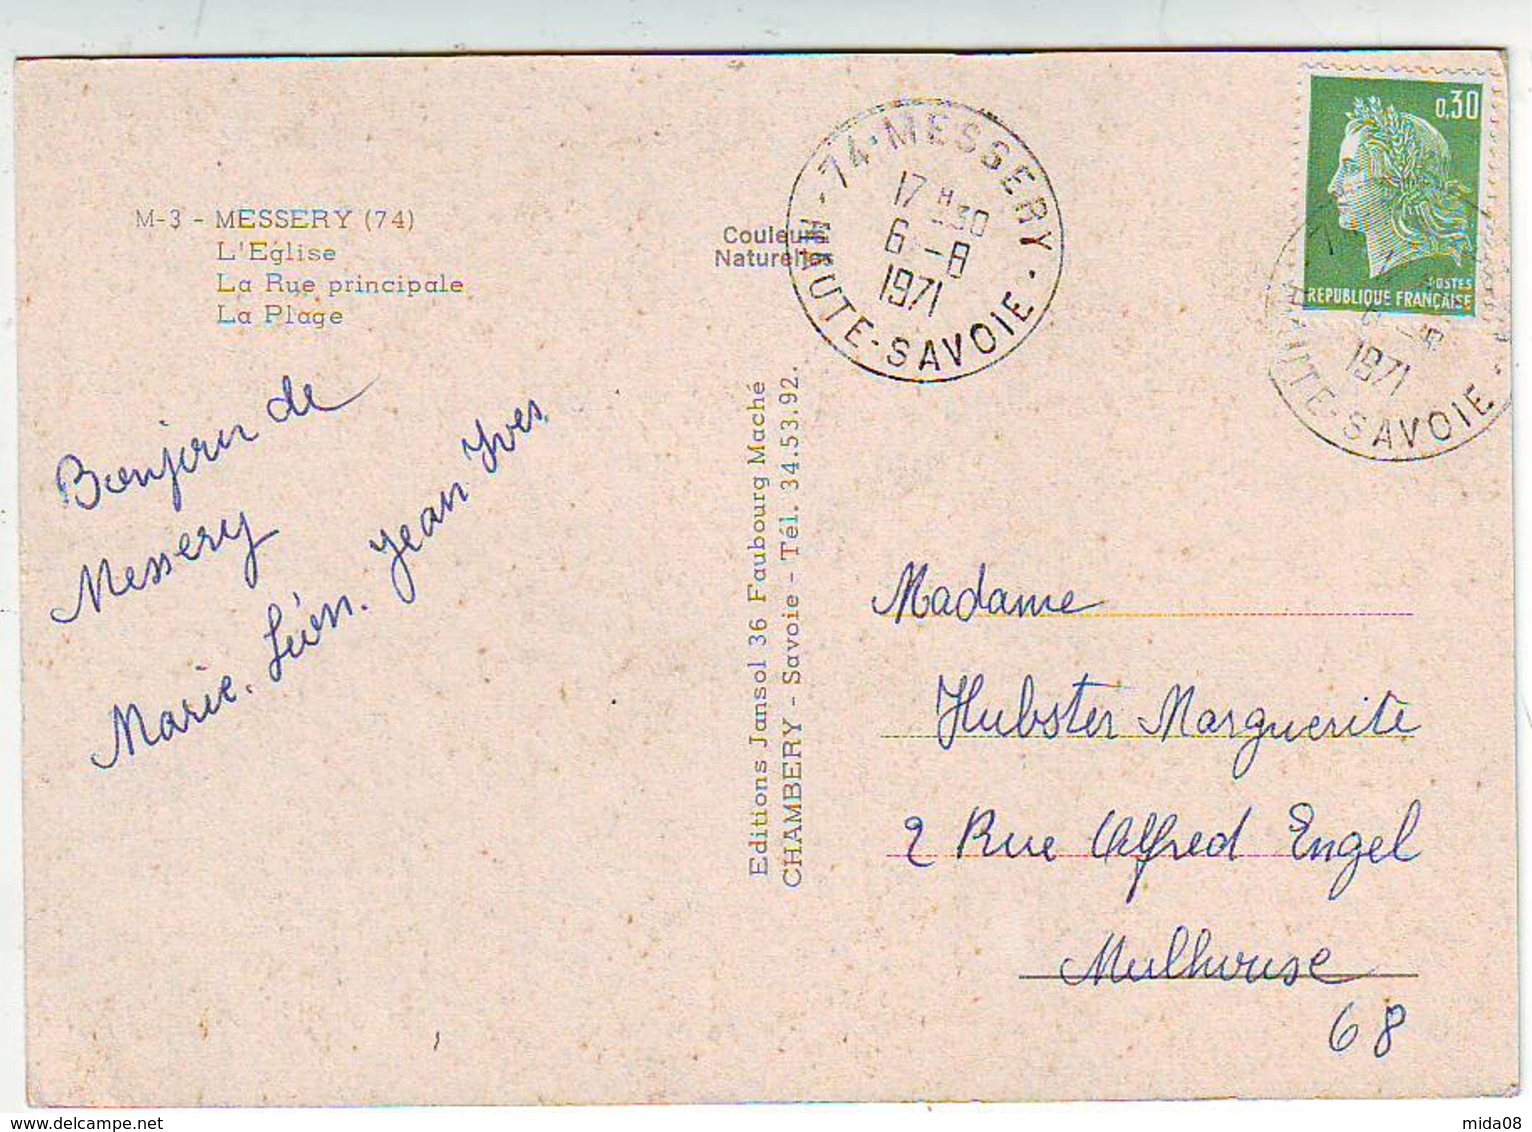 M-3 - MESSERY (74)
L'Eglise
La Rue principale
La Plage
Bonjour de
Messery
Marie. Léon. Jean Yves
Couleurs
Naturelles
Editions Jansol 36 Faubourg Maché
CHAMBERY - Savoie - Tél. 34.53.92.
74 · MESSERY
17 H 30
6 - 8
1971
HAUTE-SAVOIE
0,30
POSTES
REPUBLIQUE FRANÇAISE
6 - 8
1971
HAUTE-SAVOIE
Madame
Hubster Marguerite
2 Rue Alfred Engel
Mulhouse
68
www.delcampe.net
mida08